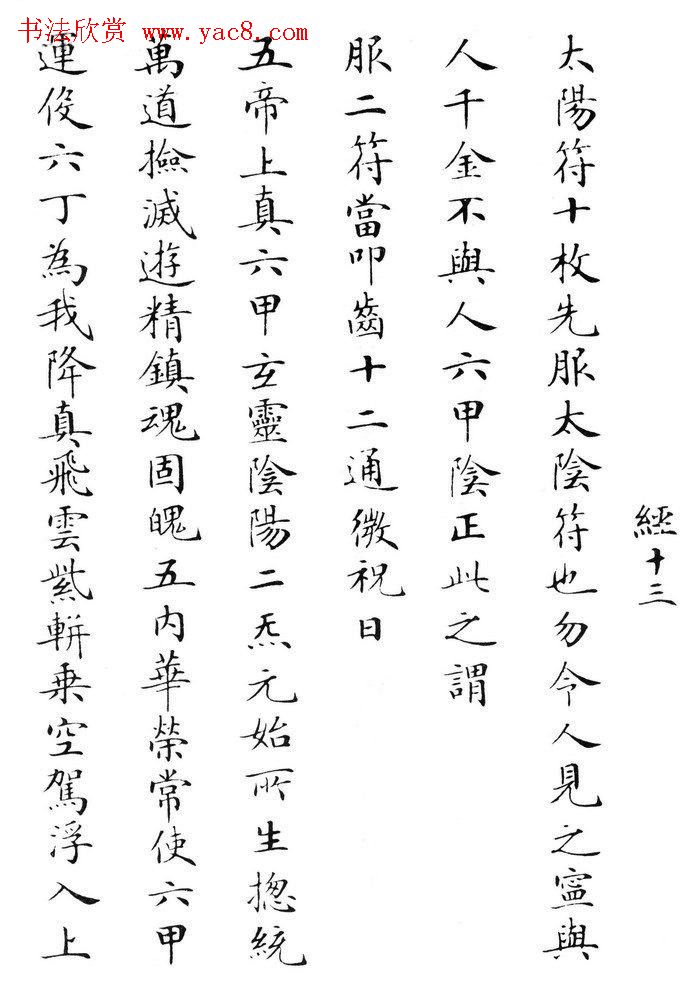 书法欣赏 www.yac8.com
經十三
太陽符十枚先服太陰符也勿令人見之寧與
人千金不與人六甲陰正此之謂
服二符當叩齒十二通微祝曰
五帝上真六甲玄靈陰陽二炁元始所生揔統
萬道撿滅遊精鎮魂固魄五内華榮常使六甲
運役六丁為我降真飛雲紫軿乗空駕浮入上